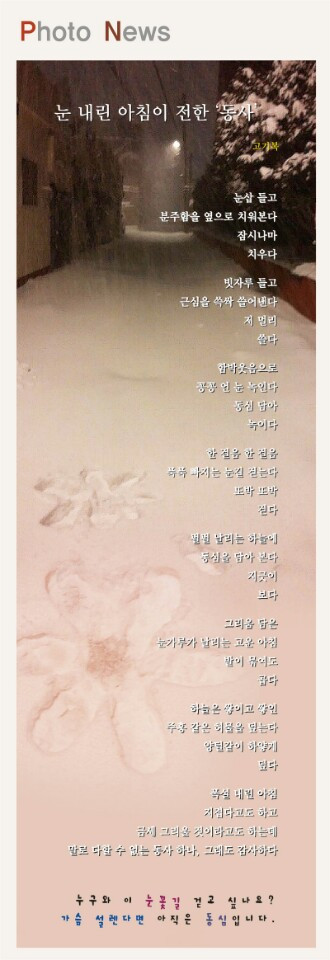 Photo News
눈 내린 아침이 전한 '동사'
고기복
눈삽 들고
분주함을 옆으로 치워본다
잠시나마
치우다
빗자루 들고
근심을 쓱싹 쓸어낸다
저 멀리
쓸다
함박웃음으로
꽁꽁 언 눈 녹인다
동심 담아
녹이다
한 걸음 한 걸음
푹푹 빠지는 눈길 걷는다
또박 또박
걷다
펄펄 날리는 하늘에
동심을 담아 본다
지긋이
보다
그리움 담은
눈가루가 날리는 고운 아침
발이 묶여도
곱다
하늘은 쌓이고 쌓인
주홍 같은 허물을 덮는다
양털같이 하얗게
덮다
폭설 내린 아침
지겹다고도 하고
금세 그리울 것이라고도 하는데
말로 다할 수 없는 동사 하나, 그래도 감사하다
누구와 이 눈꽃길 걷고 싶나요?
가슴 설렌다면 아직은 동심입니다.